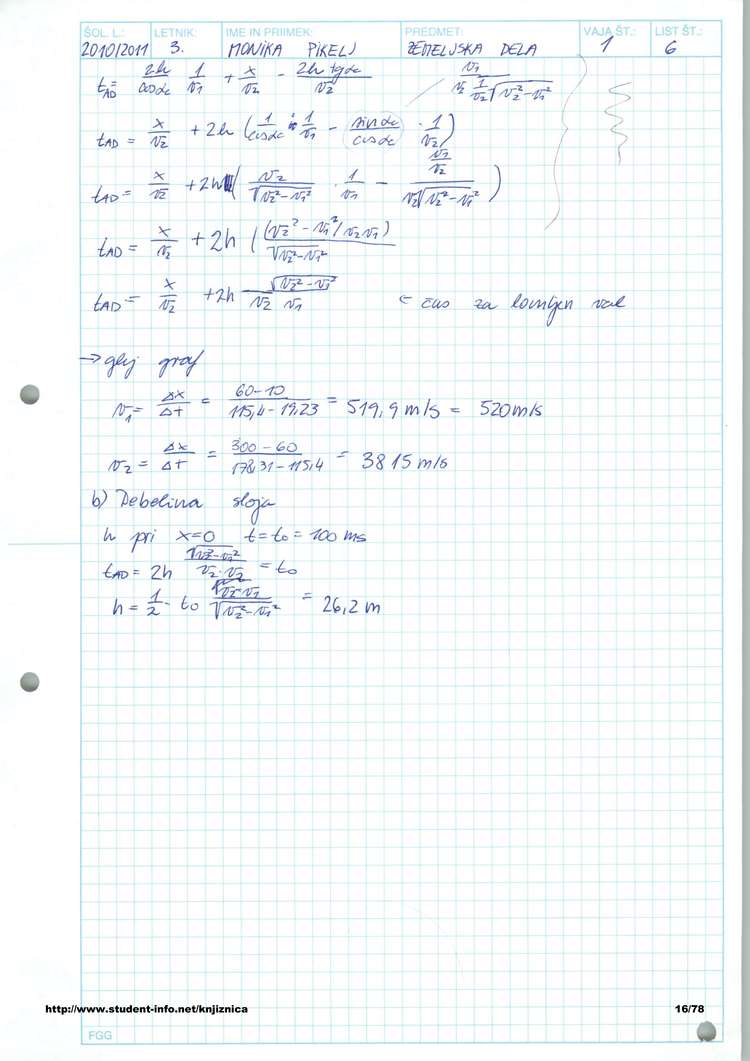 ŠOL. L.: LETNIK: IME IN PRIIMEK: PREDMET: VAJA ŠT.: LIST ŠT.:
2010/2011 3. MONIKA PIRELJ ZEMELJSKA DELA 1 6
t_AD = 2h/cosα_c 1/v1 + x/v2 - 2h tgα_c/v2 v1/(v2 1/v2 √(v2²-v1²))
t_AD = x/v2 + 2h (1/cosα_c · 1/v1 - sinα_c/cosα_c · 1/v2)
t_AD = x/v2 + 2h (v2/√(v2²-v1²) · 1/v1 - (v1/v2)/(v2√(v2²-v1²)))
t_AD = x/v2 + 2h ((v2² - v1²/v2v1)/√(v2²-v1²))
t_AD = x/v2 + 2h √(v2²-v1²)/(v2 v1) ← čas za lomljen val
→ glej graf
v1 = Δx/Δt = (60-10)/(115,4-19,23) = 519,9 m/s = 520 m/s
v2 = Δx/Δt = (300-60)/(178,31-115,4) = 3815 m/s
b) Debelina sloja
h pri x=0 t=t0 = 100 ms
t_AD = 2h √(v2²-v1²)/(v2·v2) = t0
h = 1/2 · t0 v2·v1/√(v2²-v1²) = 26,2 m
http://www.student-info.net/knjiznica 16/78
FGG